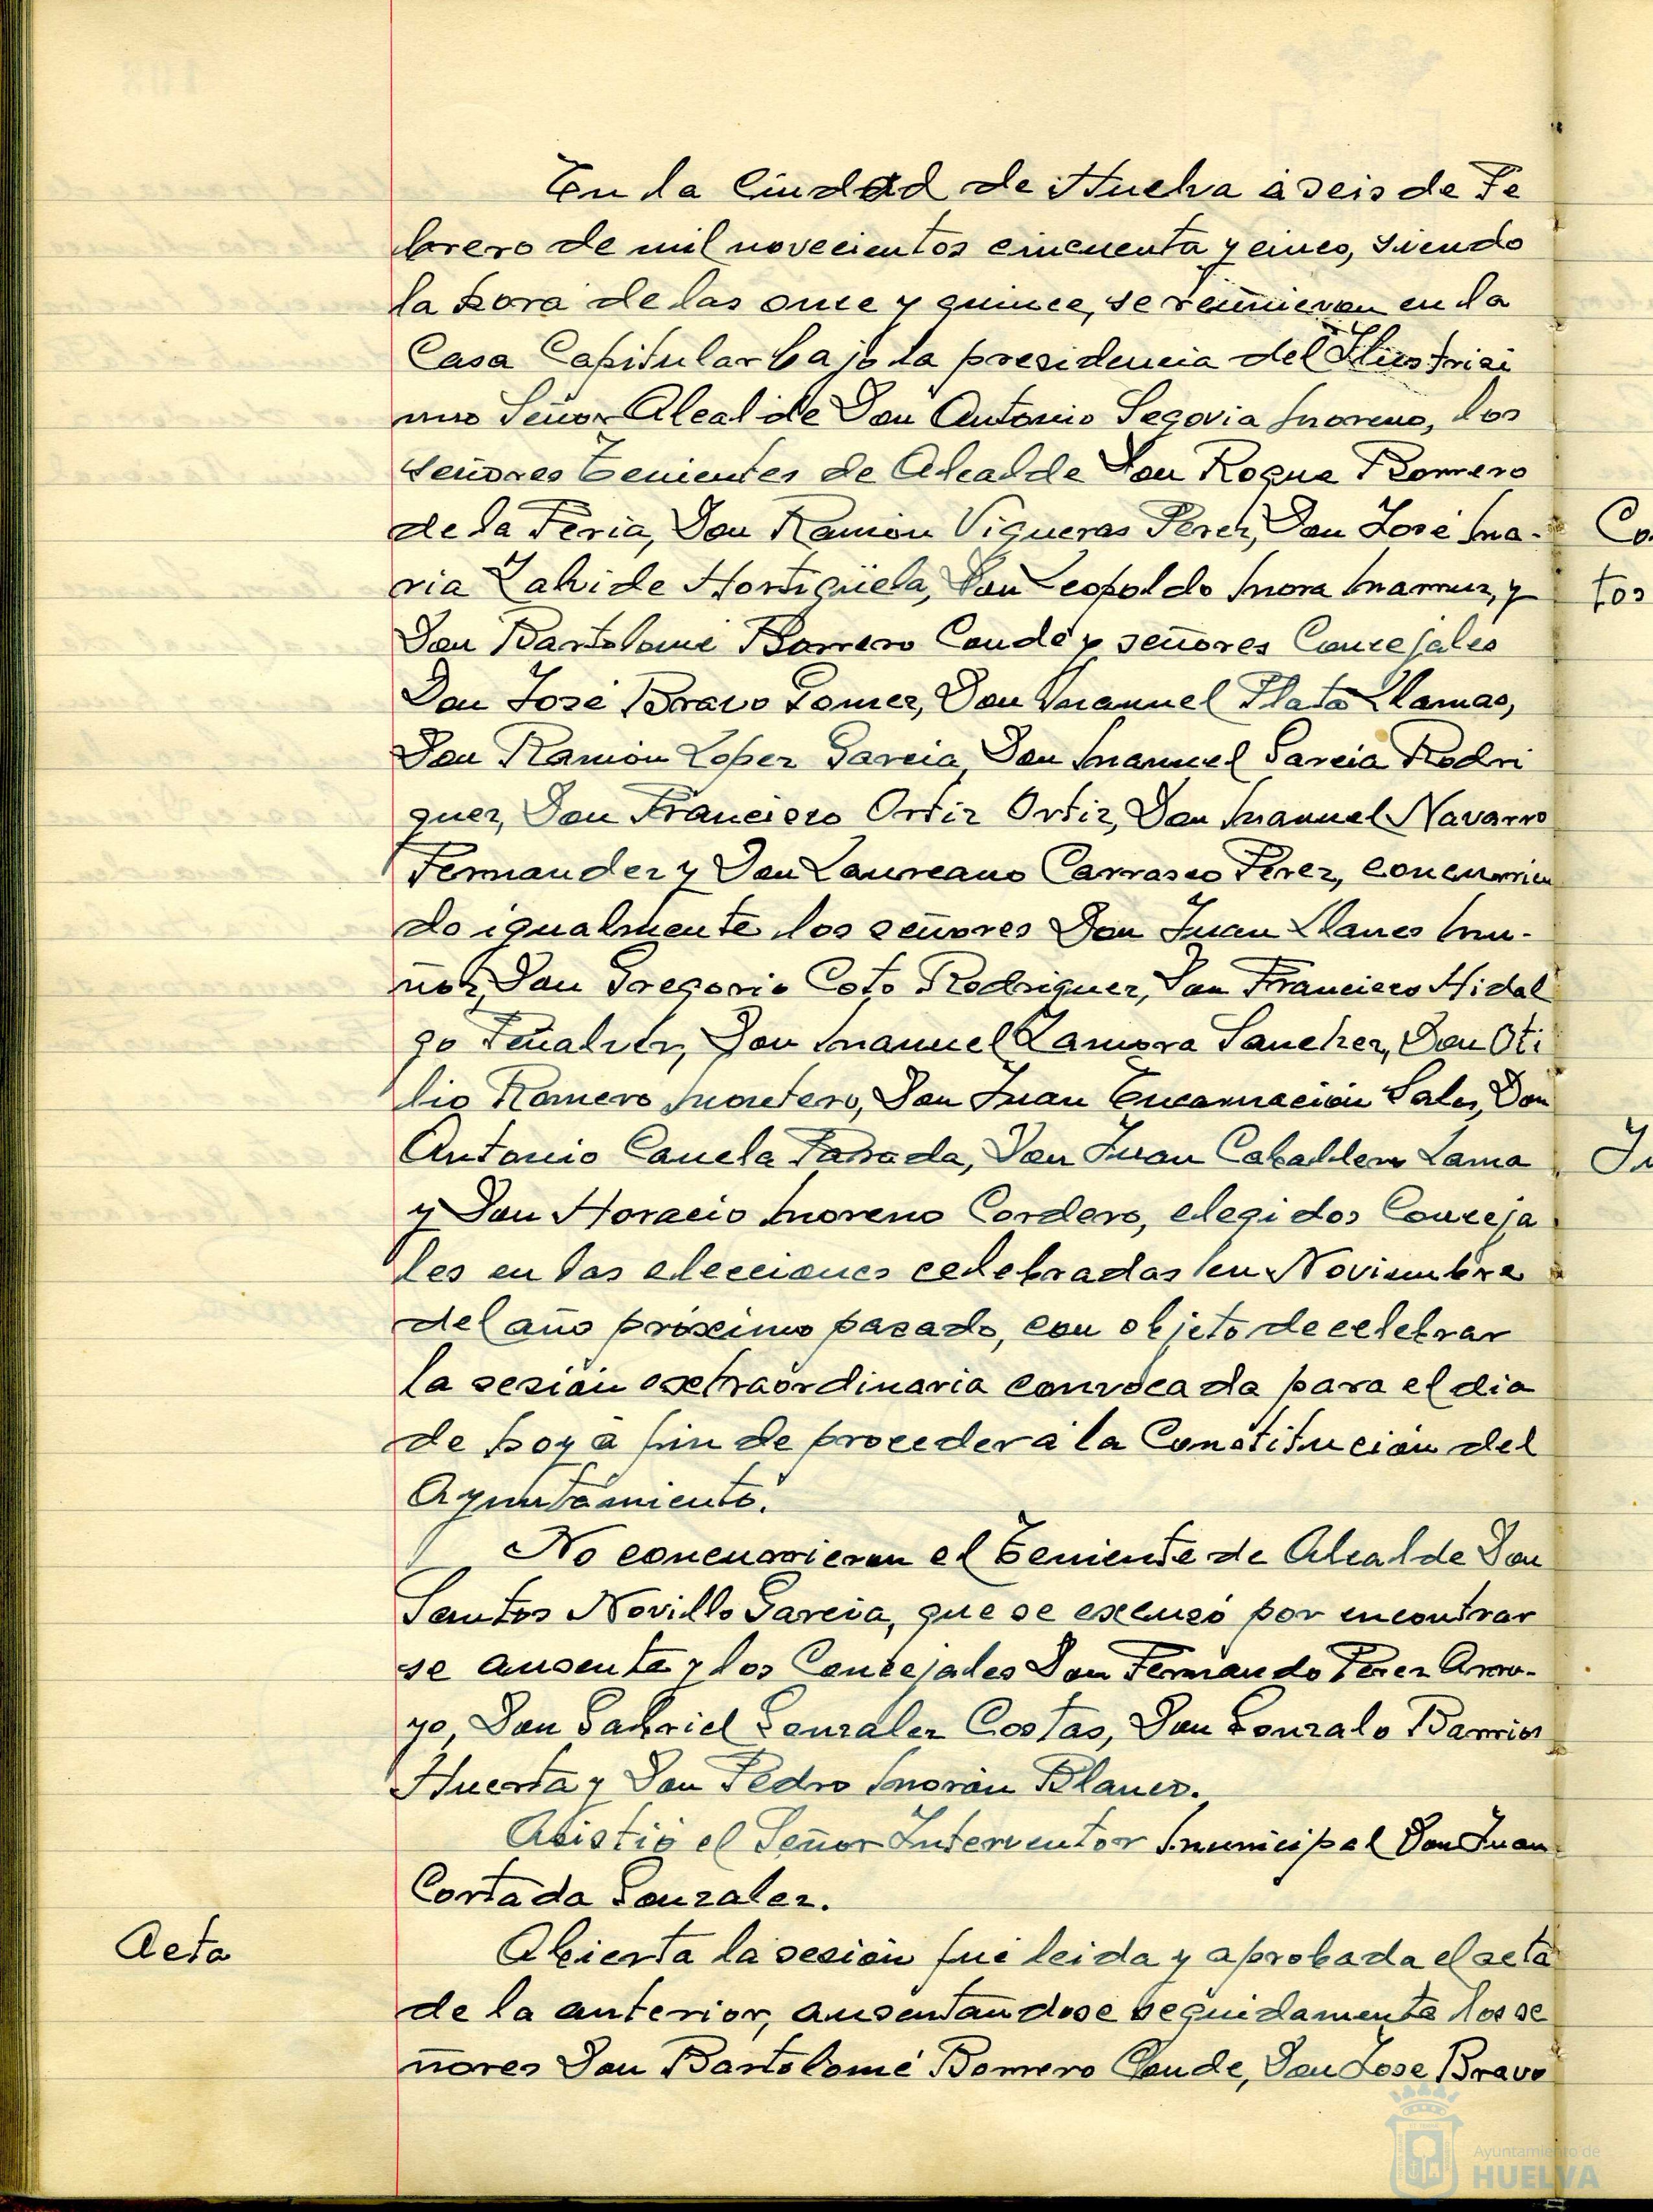 En la Ciudad de Huelva á seis de Fe
brero de mil novecientos cincuenta y cinco, siendo
la hora de las once y quince, se reunieron en la
Casa Capitular bajo la presidencia del Ilustrísi
mo Señor Alcalde Don Antonio Segovia Moreno, los
señores Tenientes de Alcalde Don Roque Romero
de la Feria, Don Ramón Vigueras Perez, Don José Ma-
ria Zalvide Hortigüela, Don Leopoldo Mora y
Don Bartolomé Borrero Conde y señores Concejales
Don José Bravo Gomez, Don Manuel Plata Llamas,
Don Ramón Lopez Garcia, Don Manuel Garcia Rodri
guez, Don Francisco Ortiz Ortiz, Don Manuel Navarro
Fernandez y Don Laureano Carrasco Perez, concurrien
do igualmente los señores Don Juan Llanes Mu-
ñoz, Don Gregorio Coto Rodriguez, Don Francisco Hidal
go Peñalver, Don Manuel Zamora Sanchez, Don Oti
lio Romero Montero, Don Juan Encarnación Don
Antonio Canela Parada, Don Juan Caballero Lama
y Don Horacio Moreno Cordero, elegidos Conceja
les en las elecciones celebradas en Noviembre
del año próximo pasado, con objeto de celebrar
la sesión extraordinaria convocada para el dia
de hoy á fin de proceder á la Constitución del
Ayuntamiento.
No concurrieron el Teniente de Alcalde Don
Santos Novillo Garcia, que se excusó por encontrar
se ausente y los Concejales Don Fernando Perez Arro-
yo, Don Gabriel Gonzalez Costas, Don Gonzalo Barrios
Huerta y Don Pedro Morón Blanco.
Asistió el Señor Interventor Municipal Don Juan
Cortada Gonzalez.
Acta
Abierta la sesión fué leida y aprobada el acta
de la anterior, ausentandose seguidamente los se
ñores Don Bartolomé Borrero Conde, Don José Bravo
Co
tos
Ayuntamiento de
HUELVA